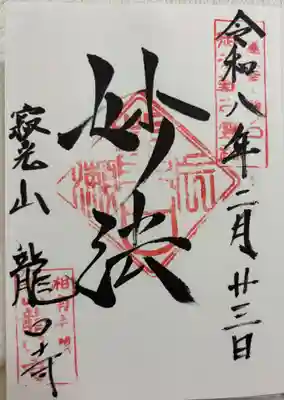 令和八年二月廿三日
妙法
寂光山 龍口寺